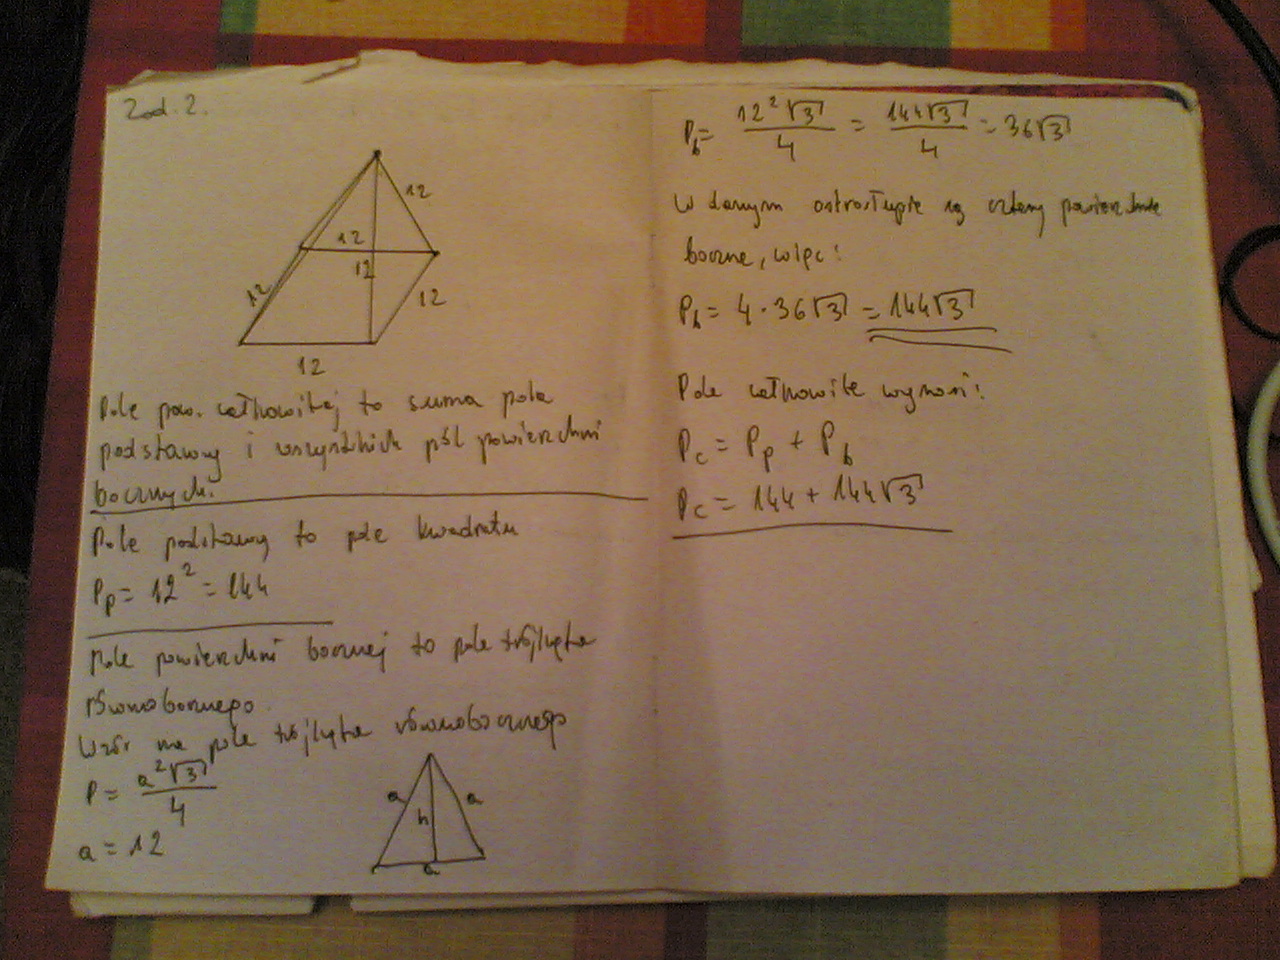 Zad. 2.
12
12
12
12
12
12
Pole pow. całkowitej to suma pola
podstawy i wszystkich pól powierzchni
bocznych.
Pole podstawy to pole kwadratu
P_p = 12² = 144
Pole powierzchni bocznej to pole trójkąta
równobocznego.
Wzór na pole trójkąta równobocznego
P = a²√3 / 4
a = 12
a
a
h
a
P_b = 12²√3 / 4 = 144√3 / 4 = 36√3
W danym ostrosłupie są cztery powierzchnie
boczne, więc:
P_b = 4 · 36√3 = 144√3
Pole całkowite wynosi:
P_c = P_p + P_b
P_c = 144 + 144√3